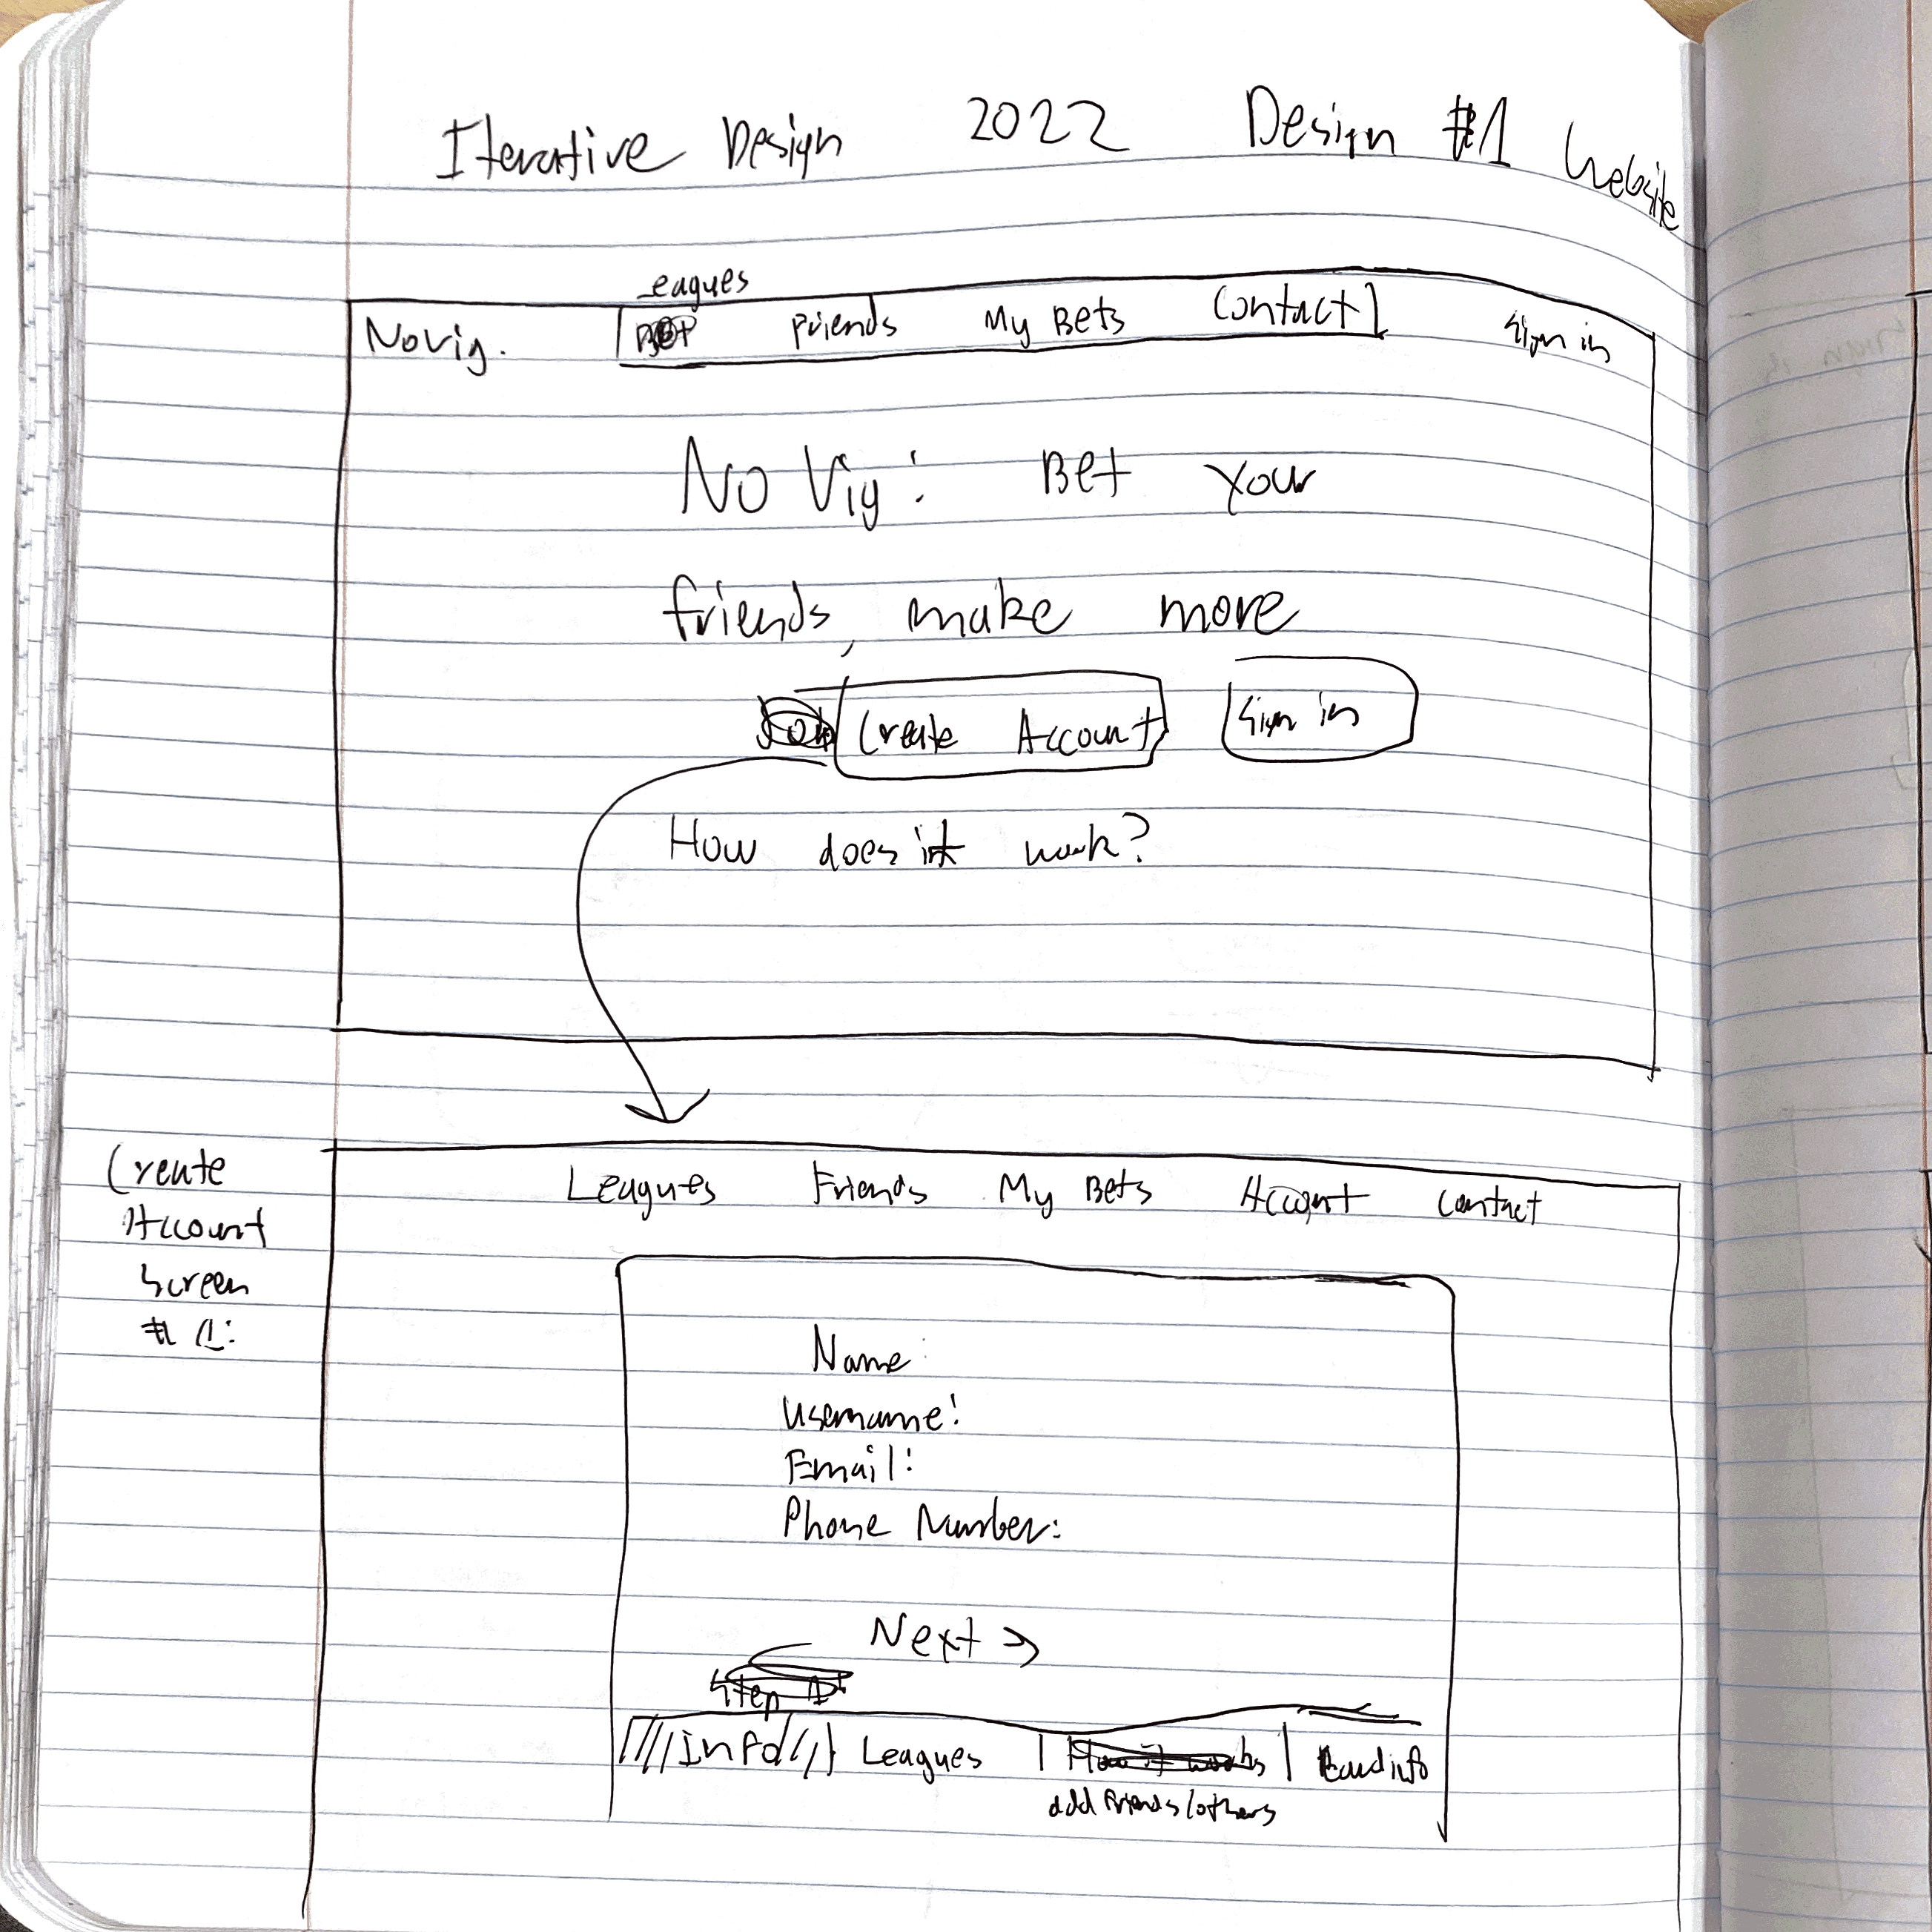 Iterative Design 2022 Design #1 Website
Leagues
Novig. Friends My Bets Contact Sign in
No Vig: Bet your
friends, make more
Create Account Sign in
How does it work?
Create
Account
Screen
#1:
Leagues Friends My Bets Account Contact
Name:
Username:
Email:
Phone Number:
Next →
Step 1:
info Leagues How it works Card info
add friends/others